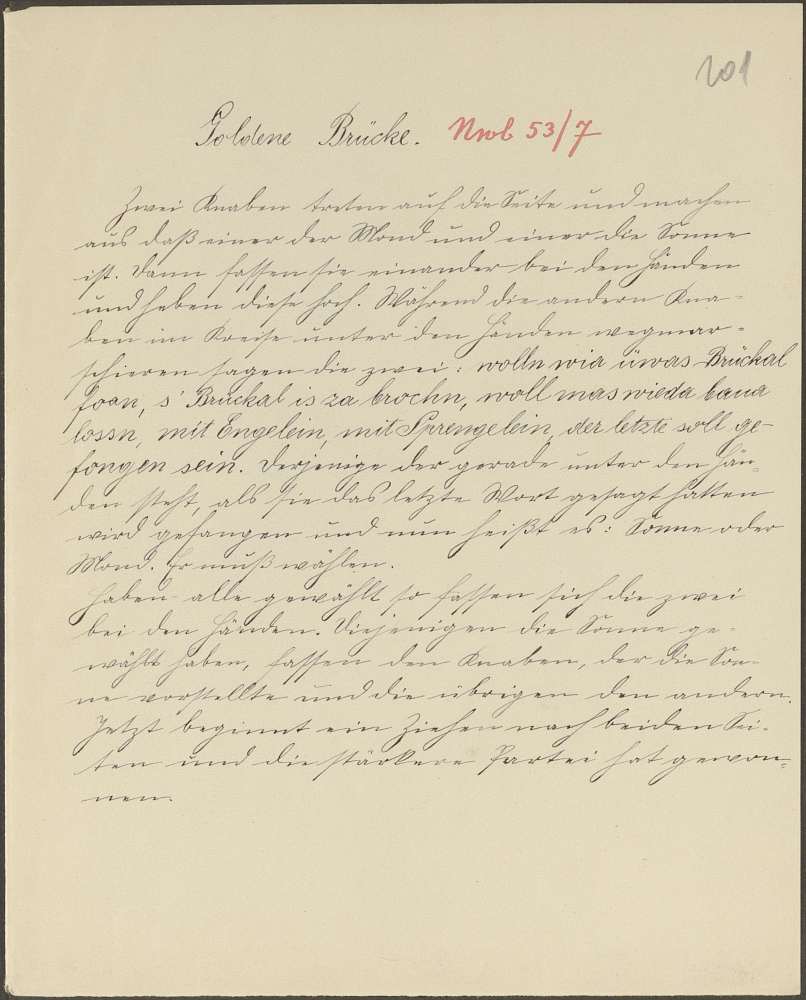 201
Goldene Brücke. Nwb 53/7
Zwei Knaben treten auf die Seite und machen
aus daß einer der Mond und einer die Sonne
ist. Dann fassen sie einander bei den Händen
und heben diese hoch. Während die andern Kna-
ben im Kreise unter den Händen wegmar-
schieren sagen die zwei: wolln wia üwas Brückal
foan, s' Brückal is za brochn, woll mas wieda baua
lossn, mit Engelein, mit Sprengelein, der letzte soll ge-
fongen sein. Derjenige der gerade unter den Hän-
den steht, als sie das letzte Wort gesagt hatten
wird gefangen und nun heißt es: Sonne oder
Mond. Er muß wählen.
Haben alle gewählt so fassen sich die zwei
bei den Händen. Diejenigen die Sonne ge-
wählt haben, fassen den Knaben, der die Son-
ne vorstellte und die übrigen den andern.
Jetzt beginnt ein Ziehen nach beiden Sei-
ten und die stärkere Partei hat gewon-
nen.